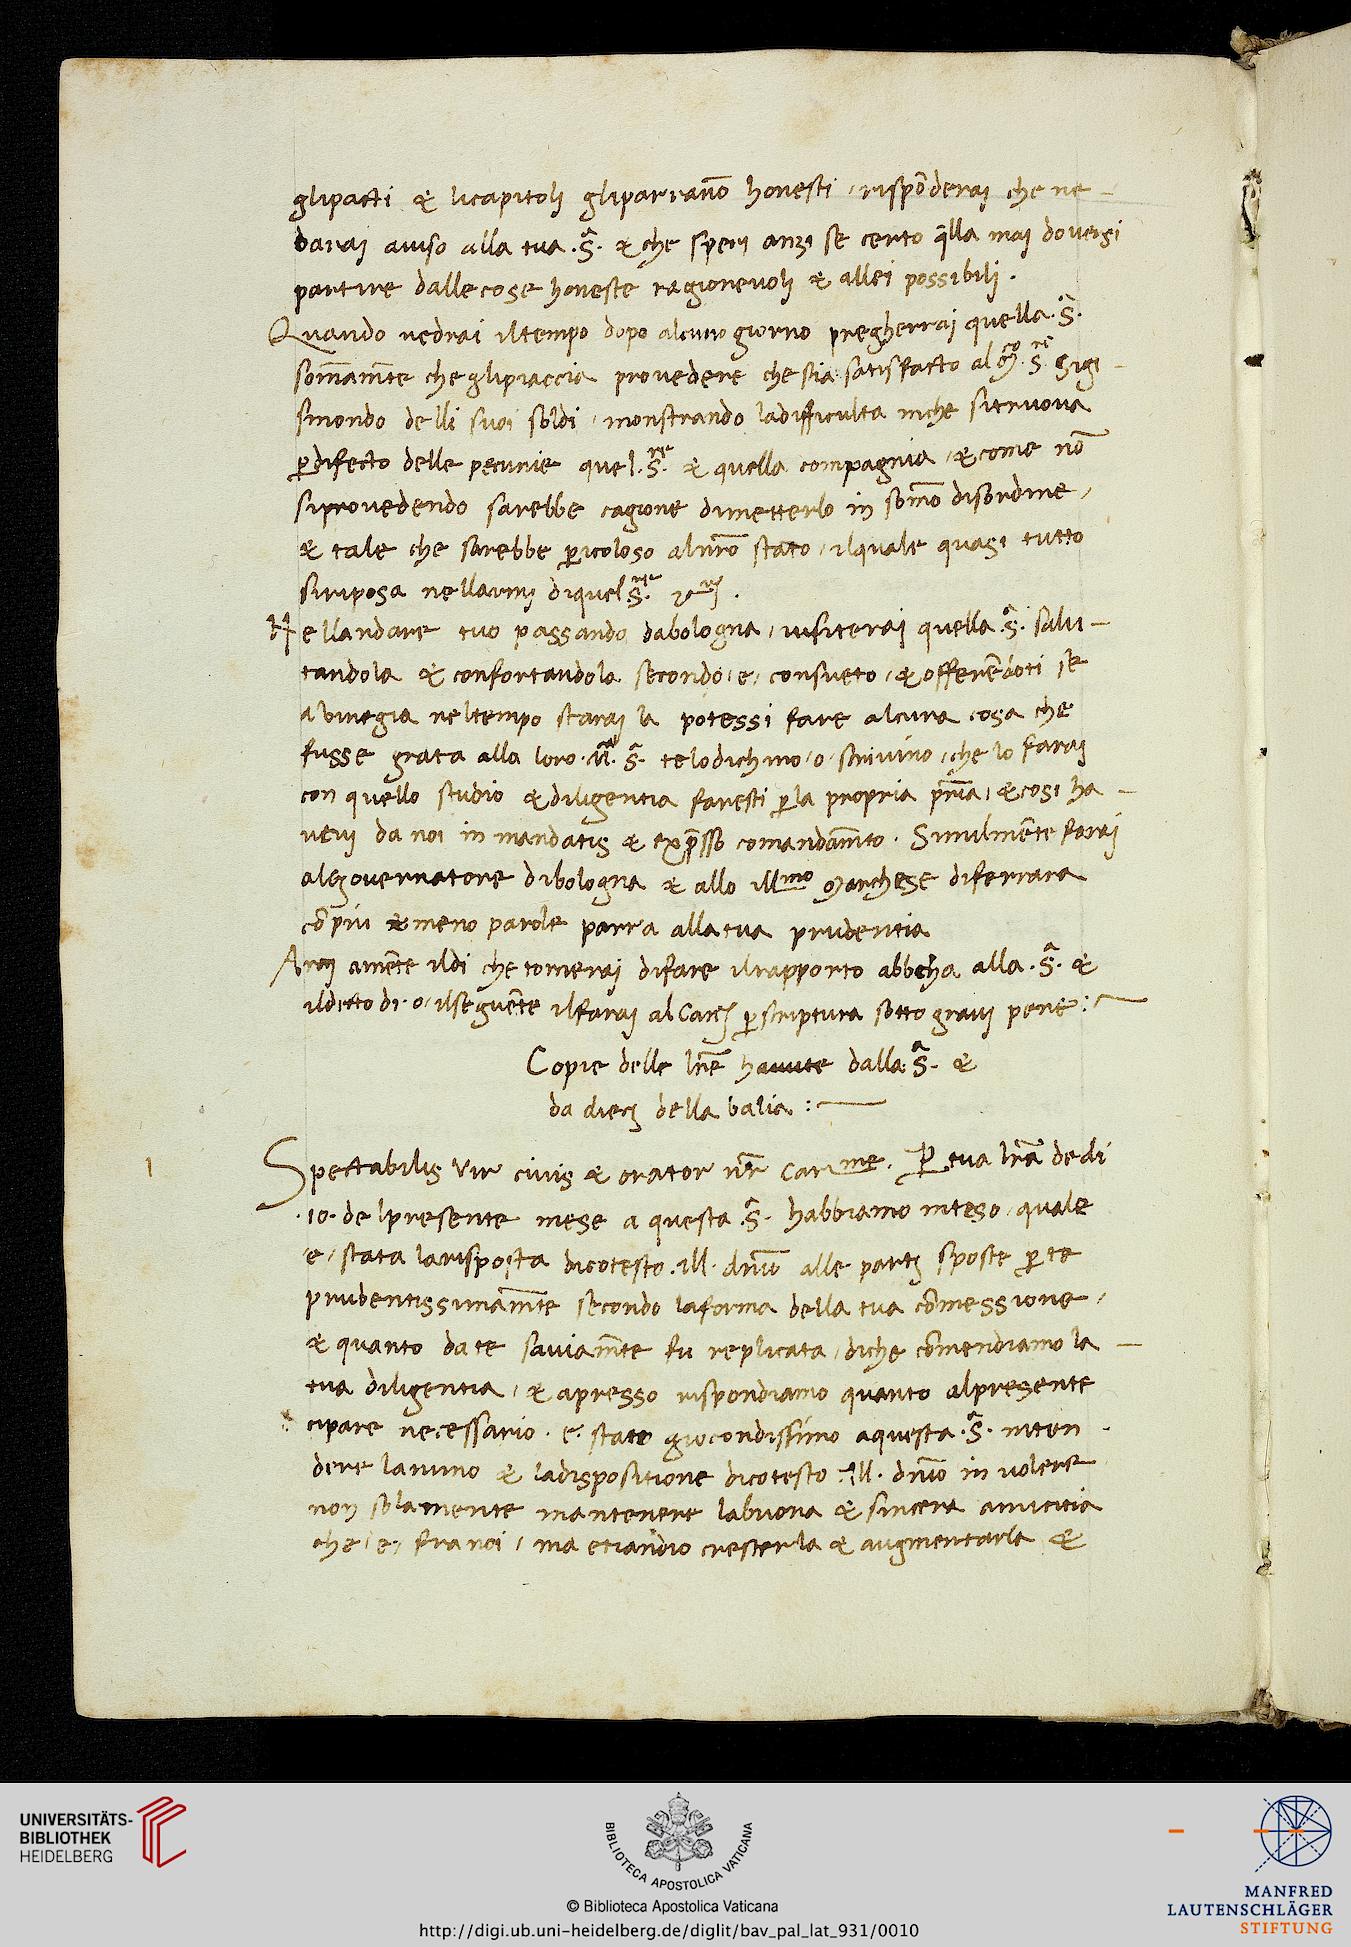 glipacti & licapitoli gliparrāno honesti / rispōderai che ne –
darai aviso alla tua .S.ª & che speri anzi se certo q̄lla mai doversi
partire dallecose honeste ragionevoli & allei possibili .
Quando vedrai iltempo dopo alcuno giorno pregherrai quella .S.ª
som̄am̄te che glipiaccia provedere che sia satisfacto al M.co S.re Sigi –
smondo delli suoi soldi / monstrando ladifficulta inche sitruova
ꝑdifecto delle pecunie quel .S.re & quella compagnia / & come nō
siprovedendo sarebbe cagione dimetterlo in som̄o disordine /
& tale che sarebbe ꝑicoloso alnr̄o stato / ilquale quasi tutto
siriposa nellarmi diquel S.re
Nellandare tuo passando dabologna / visiterai quella .S.ª salu –
tandola & confortandola secondo / e / consueto / & offerēdoti se
avinegia neltempo starai la potessi fare alcuna cosa che
fusse grata alla loro .M.ª S.ª telodichino / o / scrivino / che lo farai
con quello studio & diligentia faresti ꝑla propria pr̄ia / & cosi ha –
veni da noi in mandatis & exp̄sso comandam̄to . Similmēte farai
algovernatore dibologna & allo illmo Marchese diferrara
cō piu & meno parole parra allatua prudentia
Arai amēte ildi che tornerai difare ilrapporto abbocha alla .S.ª &
ildecto di . o / ilseguēte ilfarai al Canc ꝑ scriptura sotto gravi pene :~
Copie delle lr̄e havute dalla .S.ª &
da dieci della balia : ~
Spectabilis vir civis & orator nr̄ carme . Ꝑ tua lr̄a de di
.10. delpresente mese a questa .S.ª habbiamo inteso / quale
e / stata larisposta dicotesto .ill. dn̄io alle parti sposte ꝑ te
prudentissimam̄te secondo laforma della tua cōmessione /
& quanto da te saviam̄te fu replicata / diche cōmendiamo la –
tua diligentia / & apresso rispondiamo quanto alpresente
cipare necessario . e / stato giocondissimo aquesta .S.ª inten -
dere lanimo & ladispositione dicotesto .Ill. dn̄io in volere
non solamente mantenere labuona & sincera amicitia
che / e / fra noi / ma etiandio crescerla & augmentarla &
1
UNIVERSITÄTS-
BIBLIOTHEK
HEIDELBERG
BIBLIOTECA APOSTOLICA VATICANA
© Biblioteca Apostolica Vaticana
http://digi.ub.uni-heidelberg.de/diglit/bav_pal_lat_931/0010
MANFRED
LAUTENSCHLÄGER
STIFTUNG